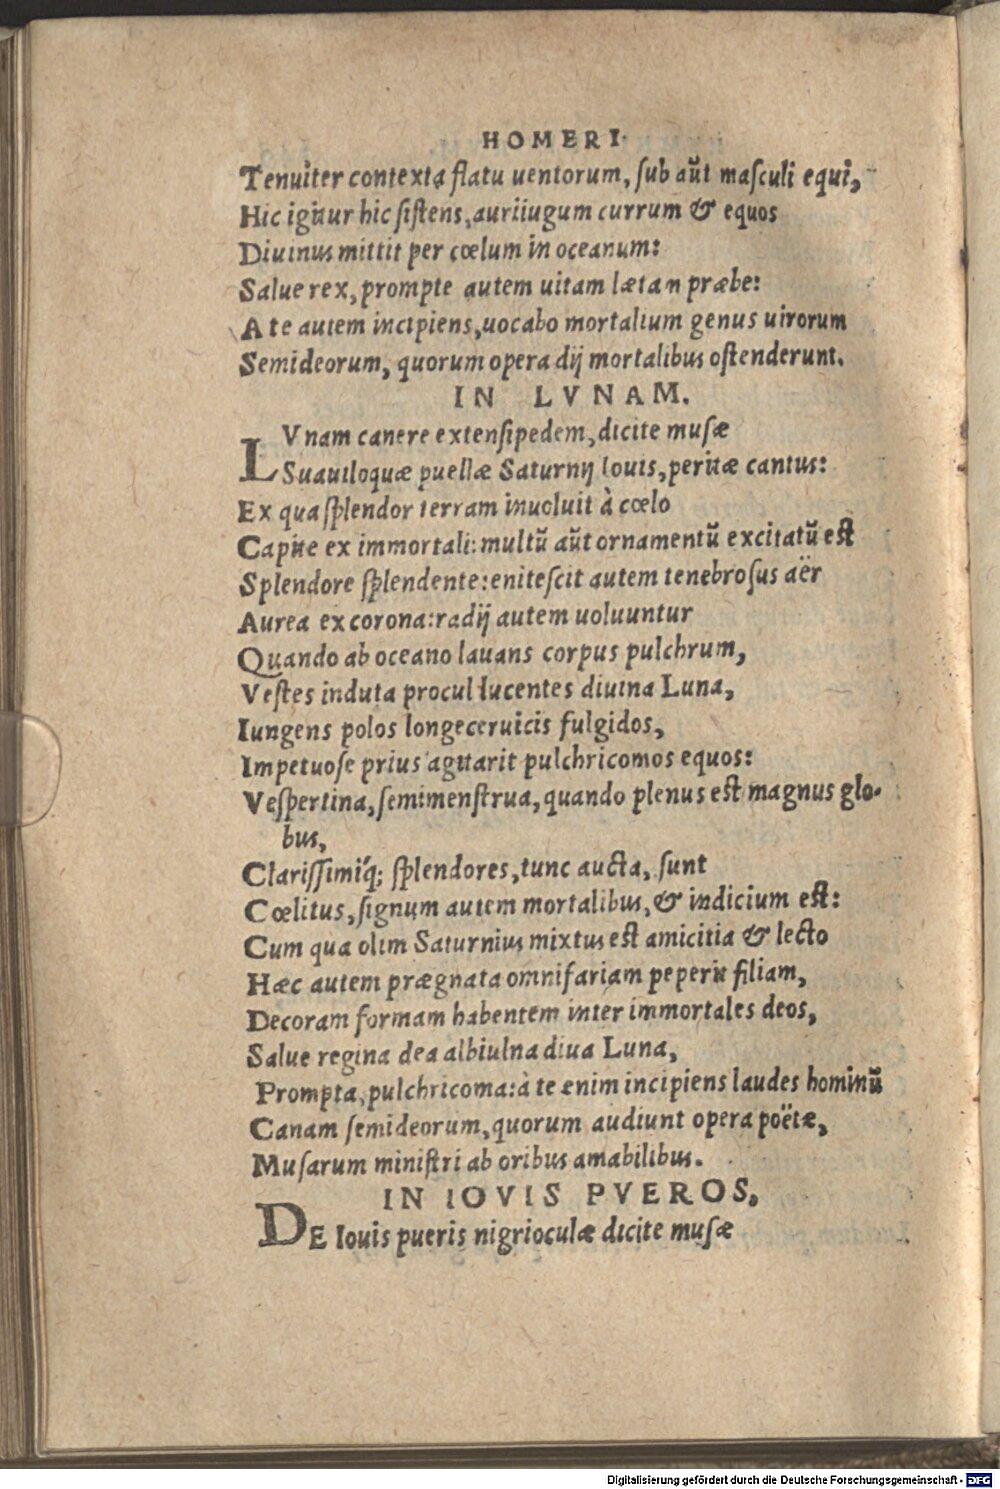 HOMERI
Tenuiter contexta flatu uentorum, sub aūt masculi equi,
Hic igitur hic sistens, auriiugum currum & equos
Diuinus mittit per cœlum in oceanum:
Salue rex, prompte autem uitam lætan præbe:
A te autem incipiens, uocabo mortalium genus uirorum
Semideorum, quorum opera dij mortalibus ostenderunt.
IN LVNAM.
LVnam canere extensipedem, dicite musæ
Suauiloquæ puellæ Saturnij Iouis, peritæ cantus:
Ex qua splendor terram inuoluit à cœlo
Capite ex immortali: multū aūt ornamentū excitatū est
Splendore splendente: enitescit autem tenebrosus aër
Aurea ex corona: radij autem uoluuntur
Quando ab oceano lauans corpus pulchrum,
Vestes induta procul lucentes diuina Luna,
Iungens polos longeceruicis fulgidos,
Impetuose prius agitarit pulchricomos equos:
Vespertina, semimenstrua, quando plenus est magnus glo-
bus,
Clarissimiq́; splendores, tunc aucta, sunt
Cœlitus, signum autem mortalibus, & indicium est:
Cum qua olim Saturnius mixtus est amicitia & lecto
Hæc autem prægnata omnifariam peperit filiam,
Decoram formam habentem inter immortales deos,
Salue regina dea albiulna diua Luna,
Prompta, pulchricoma: à te enim incipiens laudes hominū
Canam semideorum, quorum audiunt opera poëtæ,
Musarum ministri ab oribus amabilibus.
IN IOVIS PVEROS,
DE Iouis pueris nigrioculæ dicite musæ
Digitalisierung gefördert durch die Deutsche Forschungsgemeinschaft - DFG